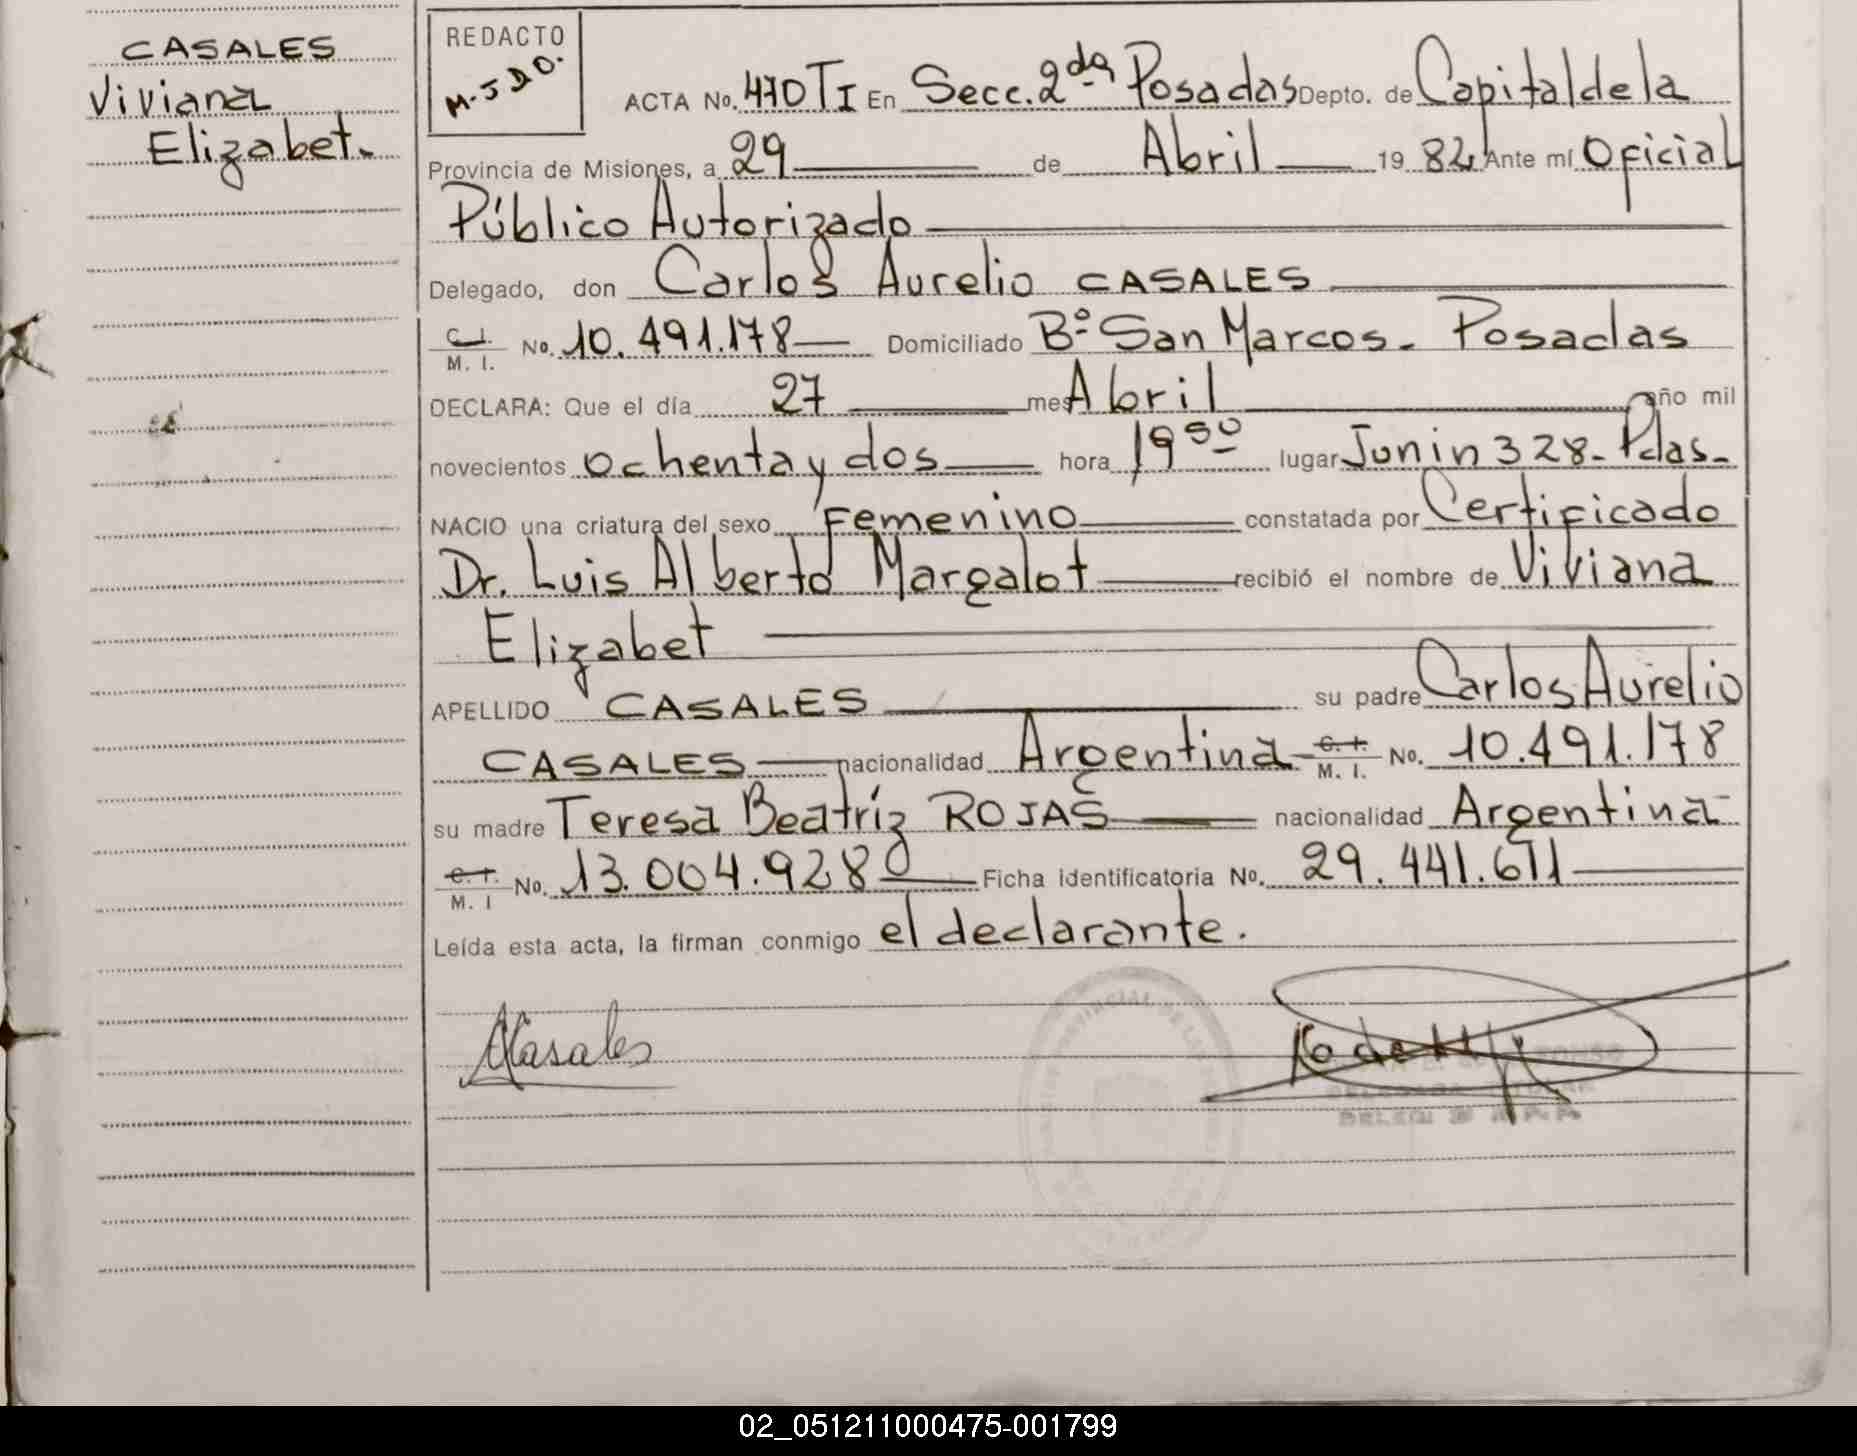 CASALES
Viviana
Elizabet.
REDACTO
M.J.D.O.
ACTA No. 470 TI En Secc. 2da Posadas Depto. de Capital de la
Provincia de Misiones, a 29 de Abril 1982 Ante mí Oficial
Público Autorizado
Delegado, don Carlos Aurelio CASALES
C. I. M. I. No. 10.491.178 Domiciliado Bº San Marcos. Posadas
DECLARA: Que el día 27 mes Abril año mil
novecientos ochenta y dos hora 19 50 lugar Junin 328. Pdas.
NACIO una criatura del sexo Femenino constatada por Certificado
Dr. Luis Alberto Margalot recibió el nombre de Viviana
Elizabet
APELLIDO CASALES su padre Carlos Aurelio
CASALES nacionalidad Argentina C. I. M. I. No. 10.491.178
su madre Teresa Beatríz ROJAS nacionalidad Argentina
C. I. M. I No. 13.004.928 Ficha identificatoria No. 29.441.611
Leída esta acta, la firman conmigo el declarante.
Casales
02_051211000475-001799